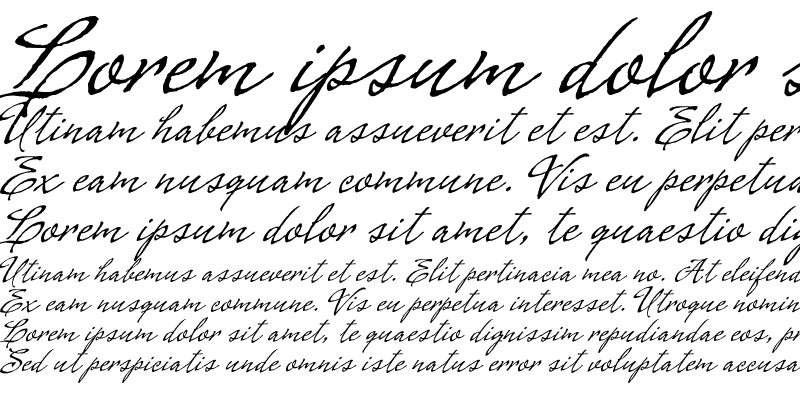 Lorem ipsum dolor
Utinam habemus assueverit et est. Elit per
Ex eam nusquam commune. Vis eu perpetua
Lorem ipsum dolor sit amet, te quaestio dig
Utinam habemus assueverit et est. Elit pertinacia mea no. At eleifend
Ex eam nusquam commune. Vis eu perpetua interesset. Utroque nomin
Lorem ipsum dolor sit amet, te quaestio dignissim repudiandae eos, pr
Sed ut perspiciatis unde omnis iste natus error sit voluptatem accusa